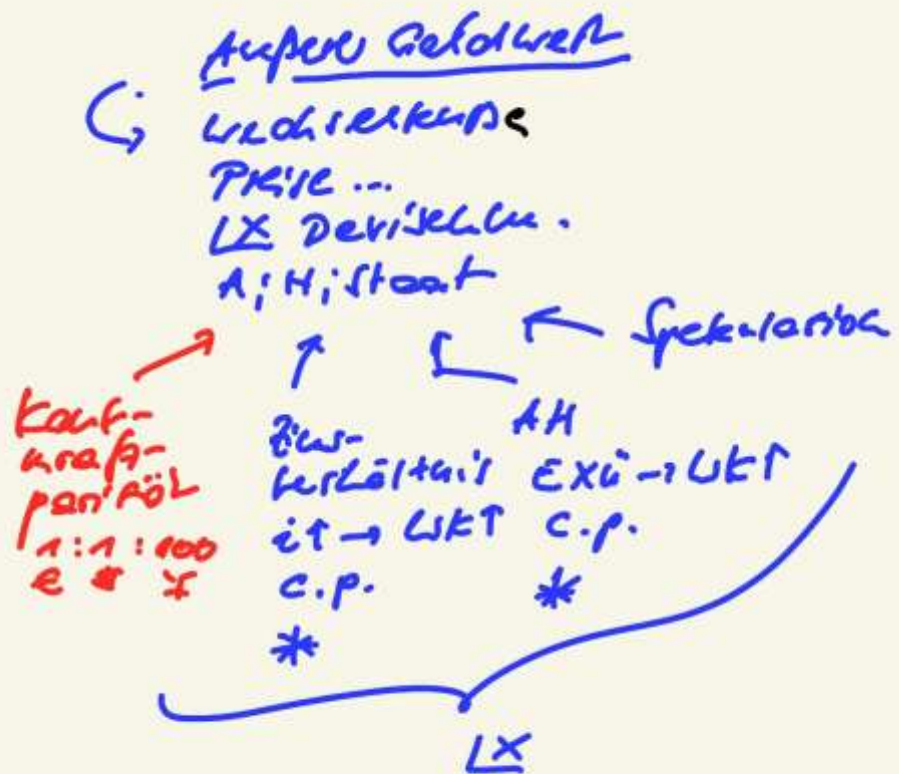 Äußerer Geldwert
Wechselkurse
Preise ...
Devisen
A; H; Staat
Spekulation
Kauf-
kraft-
parität
1:1:100
€ $ ¥
Zins-
verhältnis
i↑ → WK↑
c.p.
*
AH
EXü → WK↑
c.p.
*